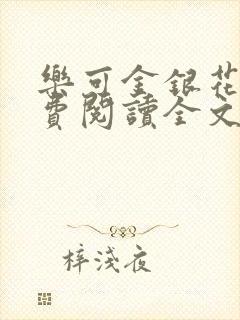 樂可金銀花
費閱讀全文
梓淺夜